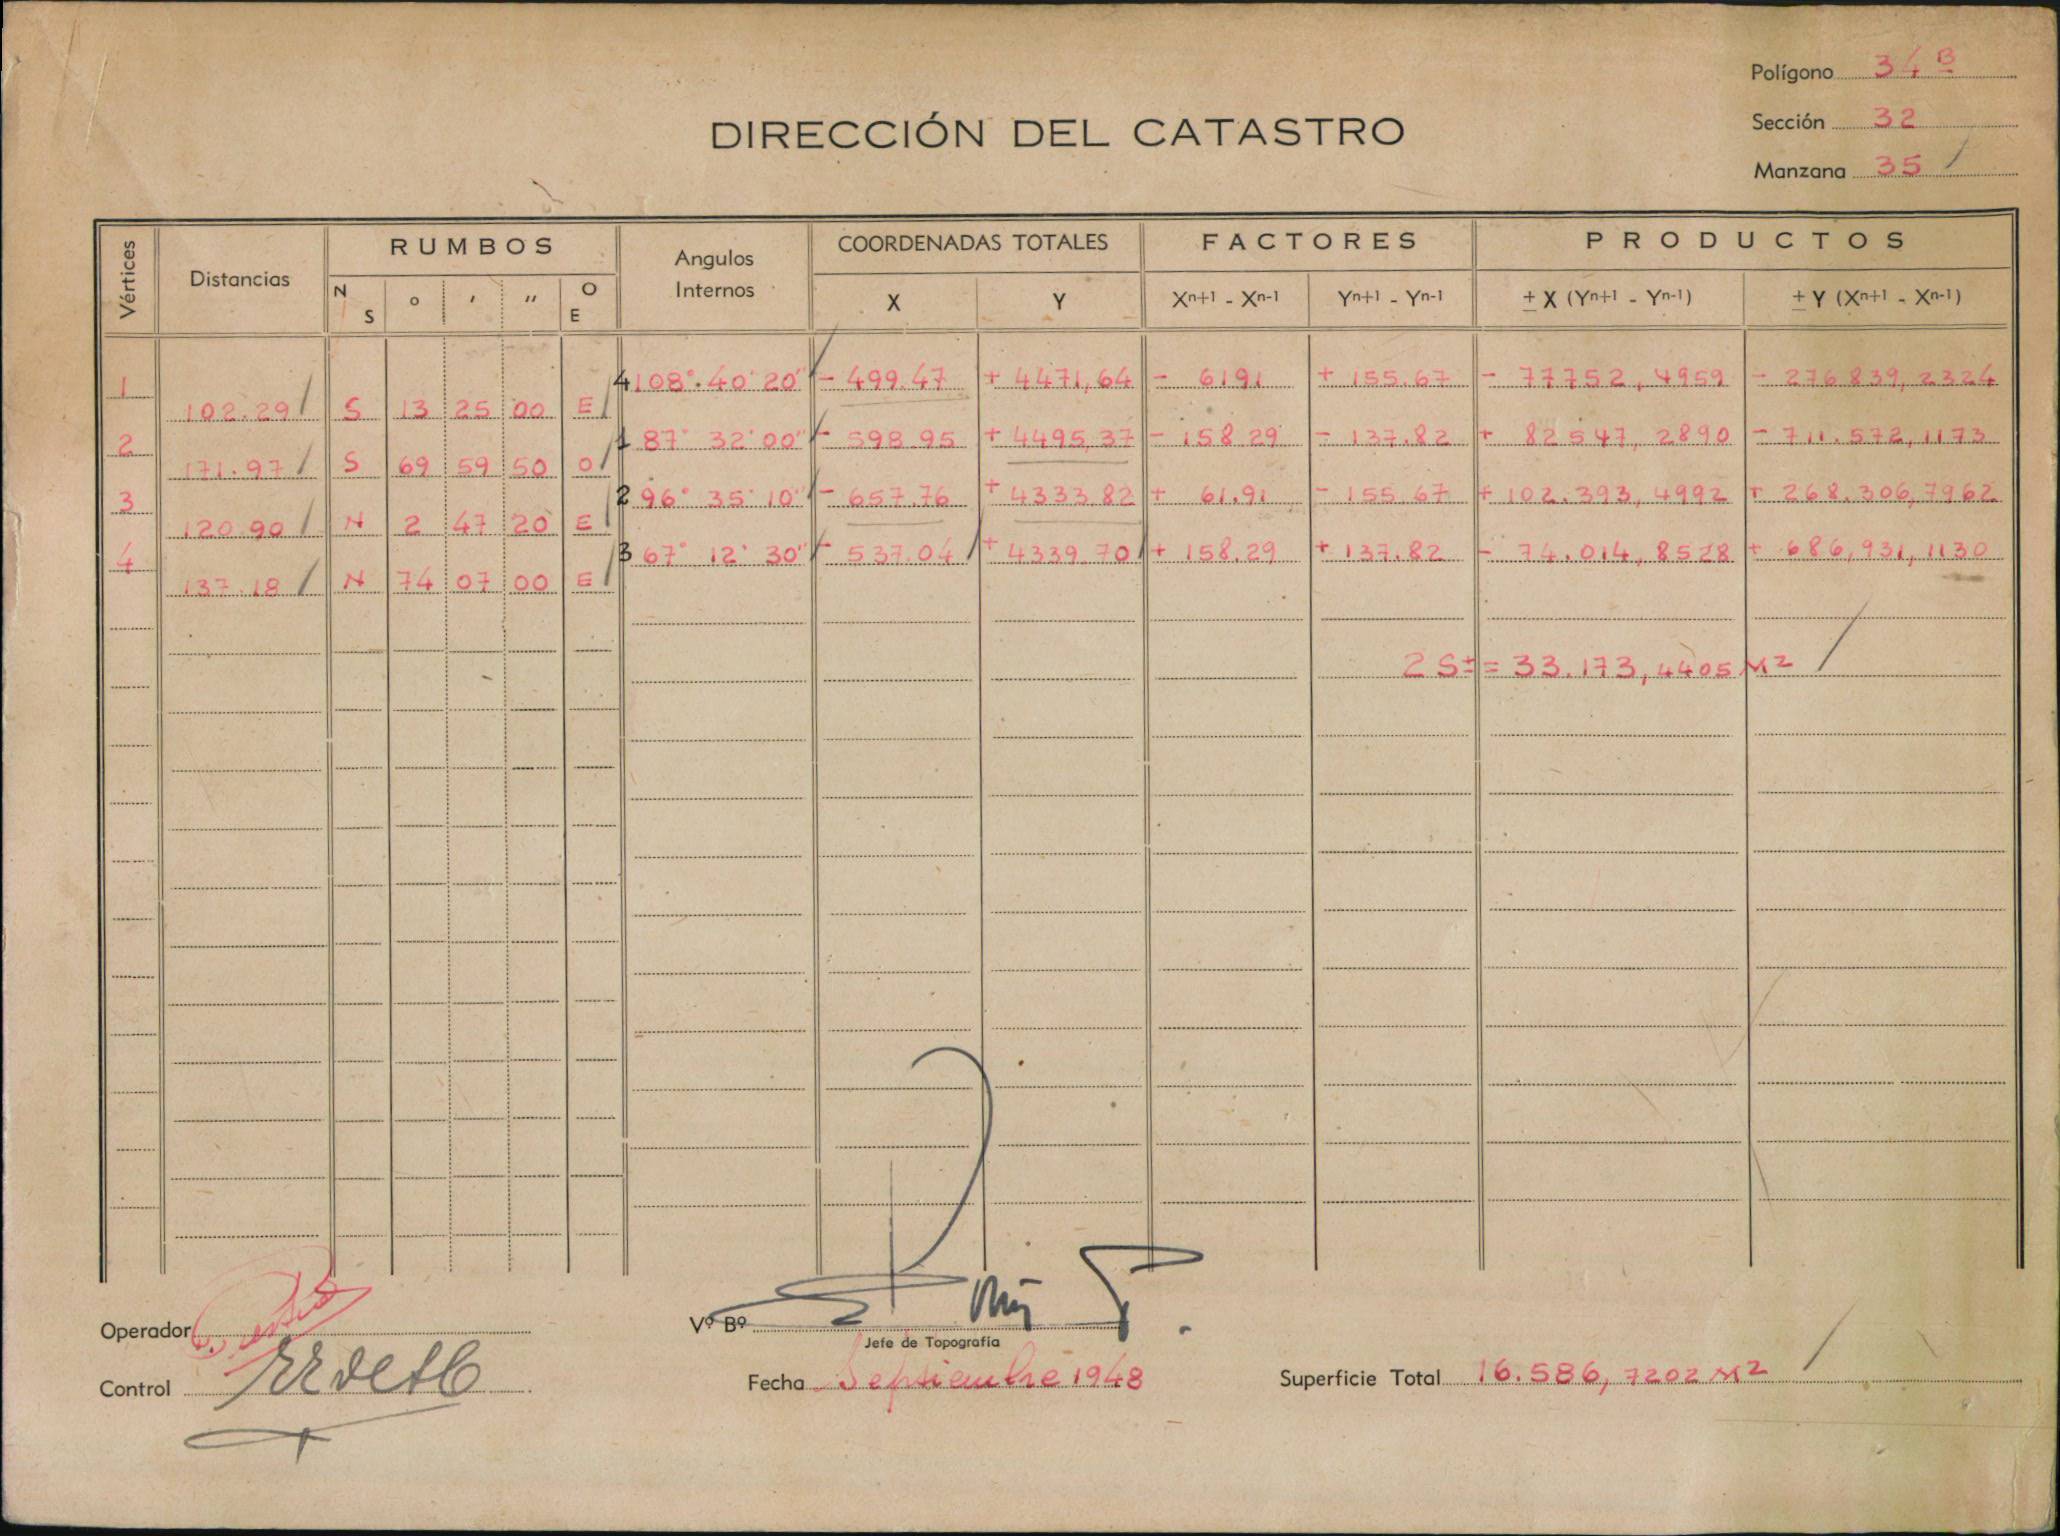 Polígono 34 B
Sección 32
Manzana 35
DIRECCIÓN DEL CATASTRO
Vértices Distancias RUMBOS Angulos Internos COORDENADAS TOTALES FACTORES PRODUCTOS
N S o ' '' O E X Y Xn+1 - Xn-1 Yn+1 - Yn-1 ± X (Yn+1 - Yn-1) ± Y (Xn+1 - Xn-1)
1 4 108° 40' 20" - 499.47 + 4471,64 - 61.91 + 155.67 - 77752,4959 - 276839,2324
102.29 S 13 25 00 E
2 1 87° 32' 00" - 598.95 + 4495,37 - 158.29 - 137.82 + 82547,2890 - 711.572,1173
171.97 S 69 59 50 O
3 2 96° 35' 10" - 657.76 + 4333.82 + 61.91 - 155.67 + 102.393,4992 + 268.306,7962
120.90 N 2 47 20 E
4 3 67° 12' 30" - 537.04 + 4339.70 + 158.29 + 137.82 - 74.014,8528 + 686,931,1130
137.18 N 74 07 00 E
2 S± = 33.173,4405 M2
Operador
Vº Bº
Jefe de Topografía
Control
Fecha Septiembre 1948
Superficie Total 16.586,7202 M2